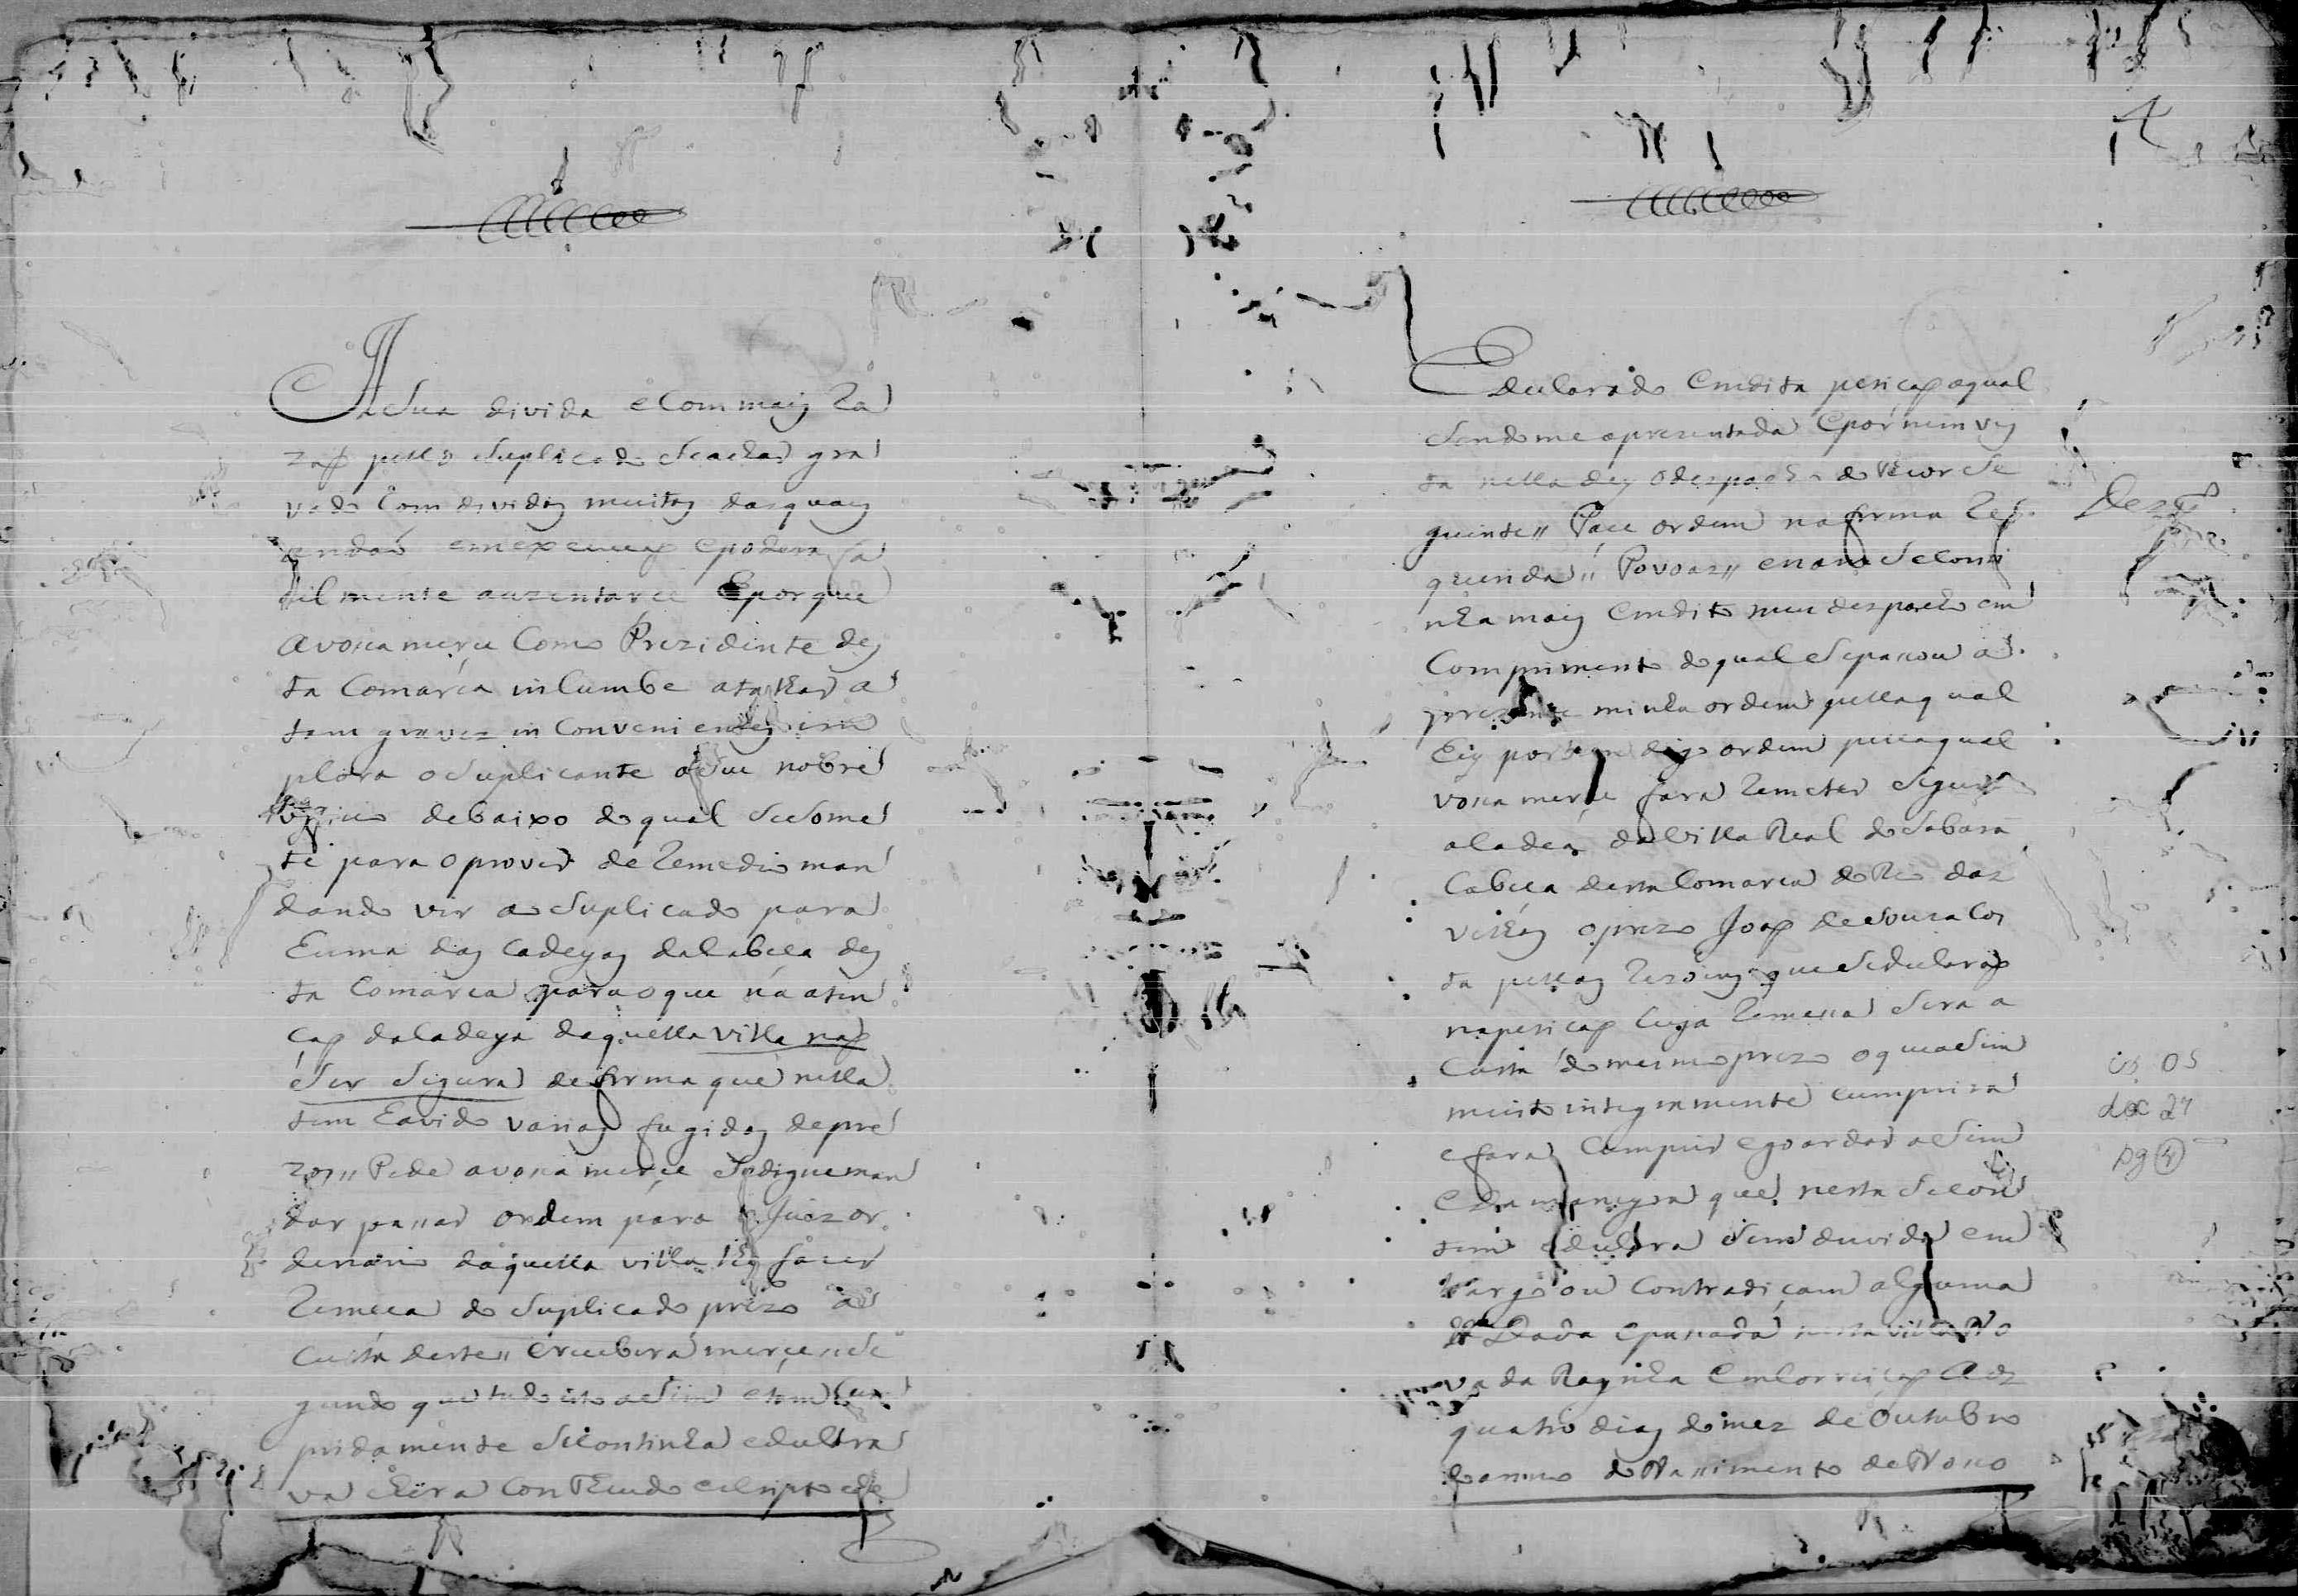 A Sua divida e Com maiz Ra
zaõ pello Suplicado Seachar gra
vado Com dividaz muitaz dasquaiz
andaõ em execuçaõ epodera fa
silmente auzentarce Eporque
avossa merce Como Prezidente dez
ta Comarca incumbe atalhar a
tam gravez in Conveniente im
plora oSuplicante oSeu nobre
officio debaixo do qual Sesome
te para oprover de Remedio man
dando vir ao Suplicado para
huma daz Cadeyaz daCabeca dez
ta Comarca paraoque há aten
çaõ daCadeya daquella villa naõ
Ser Segura deforma que nella
tem havido variaz fugidaz depre
zos,, Pede avossa merce Sedigne man
dar passar ordem para o Juiz or
denario daquella villa lhe fazer
Remeca do Suplicado prezo a
Custa deste,, eRecebera merce,, Se
gundo que tudo isto aSim etam Cum
pridamente SeContinha edeClara
va ehera ConTheudo eescripto ede
DeClarado Emdita petiçaõ aqual
Sendome aprezentada Epormim viz
ta nella dey odespacho do Theor Se
guinte,, Pace ordem naforma Re
querida,, Povoaz,, enaõ SeConti
nha maiz Emdito meu despacho em
Comprimento doqual Sepassou a
prezente minha ordem pellaqual
Eiz por bem deyo ordem pellaqual
vossa merce fara Remeter Seguro
aCadea da Villa Real do Sabara
Cabeca desta Comarca do Rio daz
Velhaz oprezo Joaõ de Souza Cos
ta pellaz Rezoinz que SedeClaraõ
napetiçaõ Cuja Remessa Sera a
Custa do mesmo prezo oqueaSim
muito integramente cumprira
efara Cumprir egoardar aSim
eDa maneyra que nesta Secon
tem edeClara Sem duvida em
bargo ou Contradiçam alguma
Dada epassada nesta villa No
va da Raynha EmCorreiçaõ Aoz
quatro diaz do mez de Outubro
do anno do Nassimento de Nosso
Deztº
cx 05
doc 27
pg 4